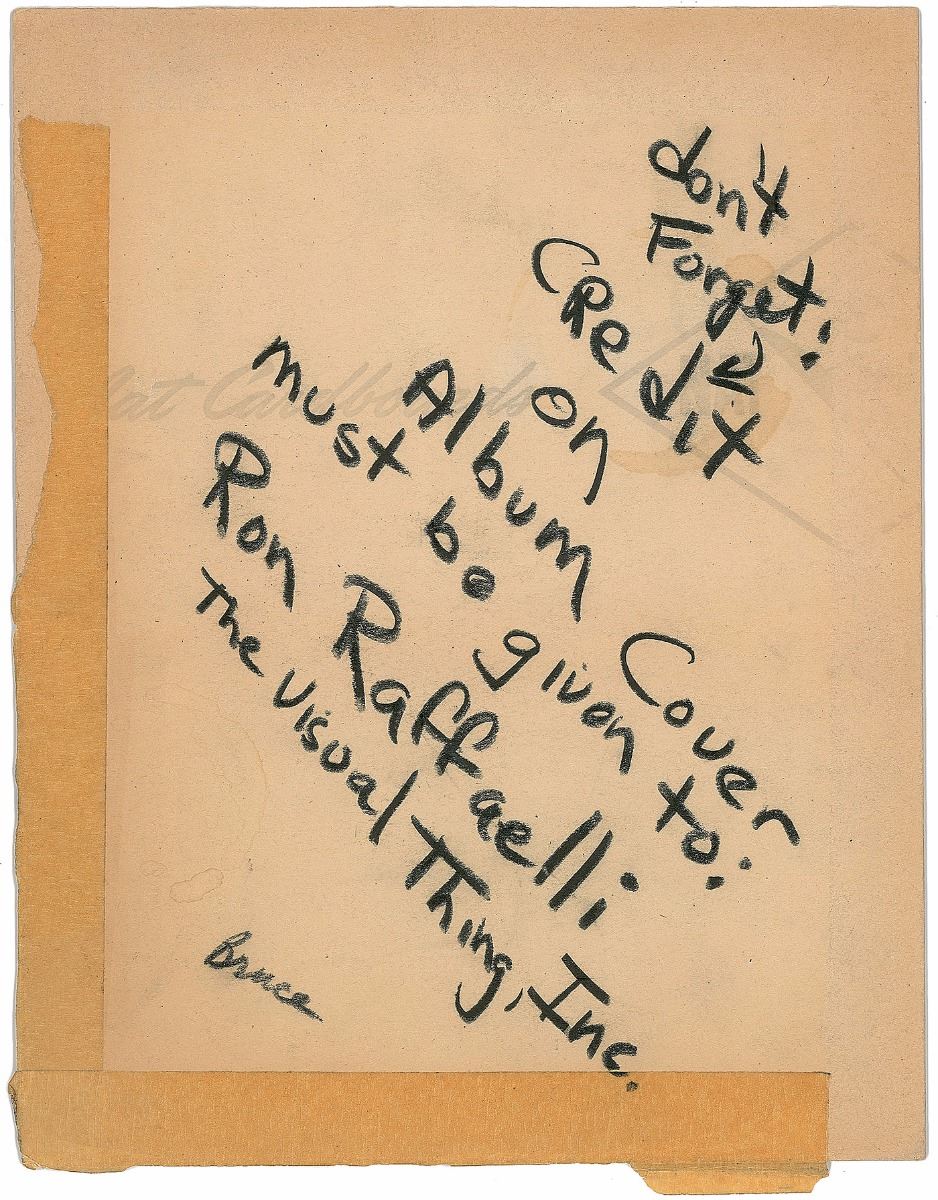 don't
Forget:
CRedit
On
Album Cover
must be given to:
Ron Raffaelli.
The Visual Thing, Inc.
Bruce
Cardboards